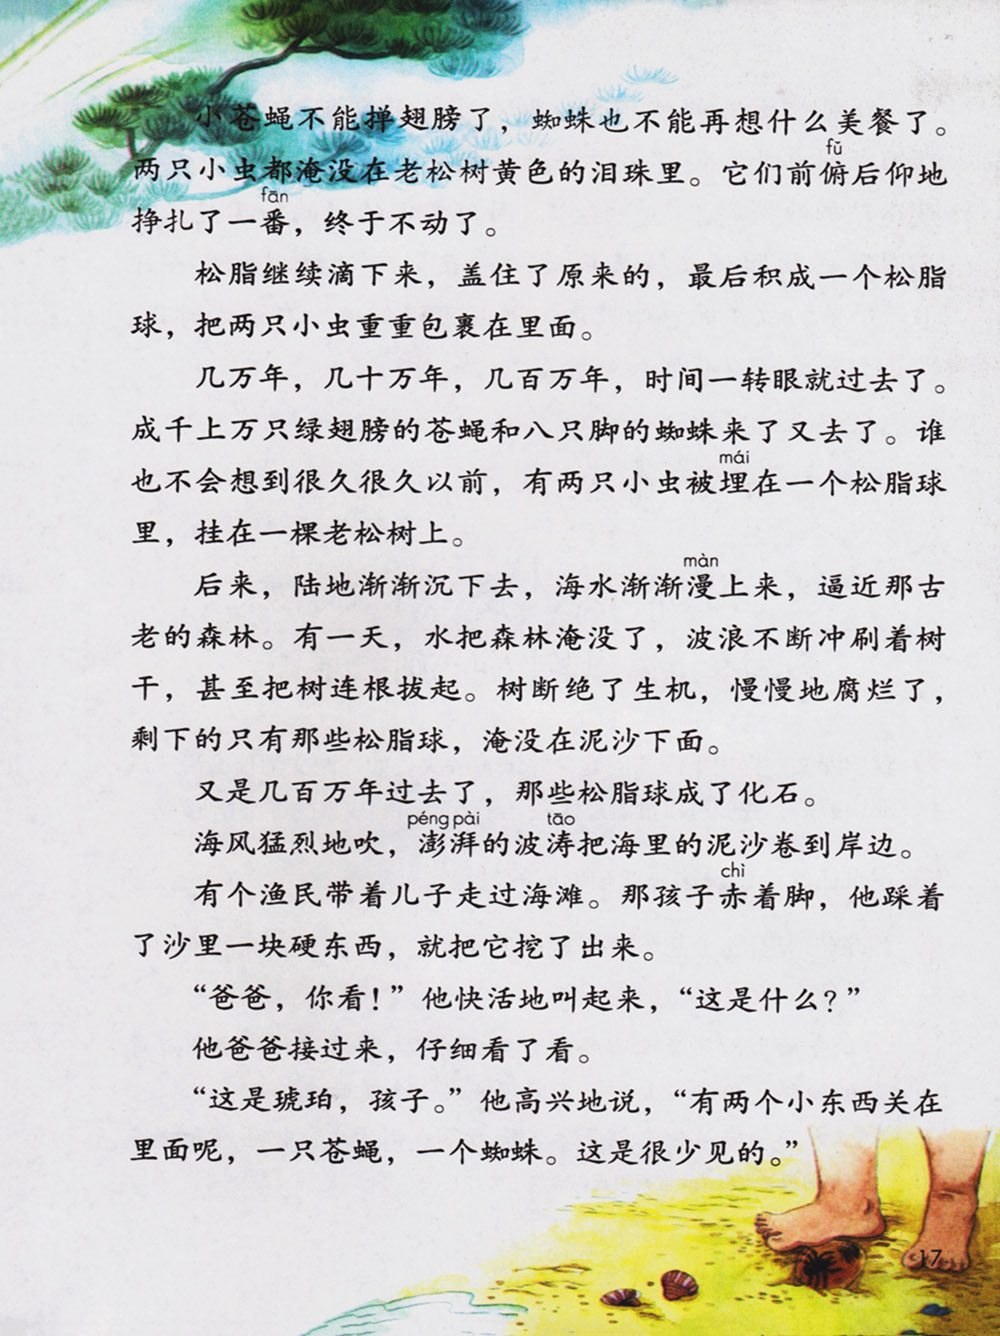 小苍蝇不能掸翅膀了，蜘蛛也不能再想什么美餐了。
fǔ
两只小虫都淹没在老松树黄色的泪珠里。它们前俯后仰地
fān
挣扎了一番，终于不动了。
松脂继续滴下来，盖住了原来的，最后积成一个松脂
球，把两只小虫重重包裹在里面。
几万年，几十万年，几百万年，时间一转眼就过去了。
成千上万只绿翅膀的苍蝇和八只脚的蜘蛛来了又去了。谁
mái
也不会想到很久很久以前，有两只小虫被埋在一个松脂球
里，挂在一棵老松树上。
màn
后来，陆地渐渐沉下去，海水渐渐漫上来，逼近那古
老的森林。有一天，水把森林淹没了，波浪不断冲刷着树
干，甚至把树连根拔起。树断绝了生机，慢慢地腐烂了，
剩下的只有那些松脂球，淹没在泥沙下面。
又是几百万年过去了，那些松脂球成了化石。
péng pài tāo
海风猛烈地吹，澎湃的波涛把海里的泥沙卷到岸边。
chì
有个渔民带着儿子走过海滩。那孩子赤着脚，他踩着
了沙里一块硬东西，就把它挖了出来。
“爸爸，你看！”他快活地叫起来，“这是什么？”
他爸爸接过来，仔细看了看。
“这是琥珀，孩子。”他高兴地说，“有两个小东西关在
里面呢，一只苍蝇，一个蜘蛛。这是很少见的。”
17